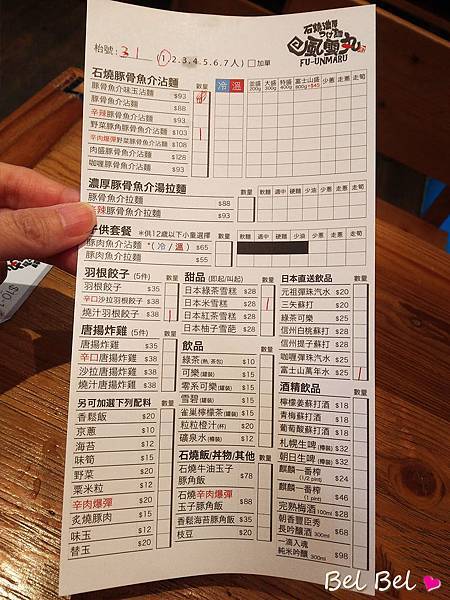 石燒濃厚
つけ麵
風雲丸
FU-UNMARU
枱號: 31 (1.2.3.4.5.6.7人) 加單
石燒豚骨魚介沾麵 數量 冷 溫 並盛 200g 大盛 300g 特盛 400g 富士山盛 800g +$45 少走 走蔥 走筍
豚骨魚介味玉沾麵 $93
豚骨魚介沾麵 $88
辛辣豚骨魚介沾麵 $93
野菜豚角豚骨魚介沾麵 $103
辛肉爆彈野菜豚骨魚介沾麵 $108
肉盛豚骨魚介沾麵 $128
咖喱豚骨魚介沾麵 $93
濃厚豚骨魚介湯拉麵 數量 軟麵 適中 硬麵 少油 少蔥 走蔥 走筍
豚骨魚介拉麵 $88
辣豚骨魚介拉麵 $93
子供套餐 *供12歲以下小童選擇 數量 軟麵 適中 硬麵 少油 少蔥 走蔥 走筍
豚肉魚介沾麵 *(冷/溫) $65
豚肉魚介拉麵 $55
羽根餃子 (5件) 數量
羽根餃子 $35
辛口沙拉羽根餃子 $38
燒汁羽根餃子 $38
唐揚炸雞 (5件) 數量
唐揚炸雞 $35
辛口唐揚炸雞 $38
沙拉唐揚炸雞 $38
燒汁唐揚炸雞 $38
另可加選下列配料 數量
香鬆飯 $20
京蔥 $10
海苔 $12
味筍 $15
野菜 $20
粟米粒 $12
辛肉爆彈 $20
炙燒豚肉 $15
味玉 $12
替玉 $20
甜品 (即起/叫起) 數量
日本綠茶雪糕 $28
日本米雪糕 $28
日本紅茶雪糕 $28
日本柚子雪葩 $28
飲品 數量
綠茶 (熱, 茶包) $10
可樂 (罐裝) $15
零系可樂 (罐裝) $15
雪碧 (罐裝) $15
雀巢檸檬茶 (罐裝) $15
粒粒橙汁 (杯) $20
礦泉水 (樽裝) $12
石燒飯/丼物/其他 數量
石燒牛油玉子
豚角飯 $78
石燒辛肉爆彈
玉子豚角飯 $88
香鬆海苔豚角飯 $35
枝豆 $20
日本直送飲品 數量
元祖彈珠汽水 $20
三矢蘇打 $20
綠茶可樂 $25
信州白桃蘇打 $25
信州提子蘇打 $25
咖喱彈珠汽水 $25
富士山萬年水 $25
酒精飲品 數量
檸檬姜蘇打酒 $18
青梅蘇打酒 $18
葡萄酸蘇打酒 $18
札幌生啤 (樽裝) $32
朝日生啤 (樽裝) $32
麒麟一番榨 (1/2 pint) $24
麒麟一番榨 (pint) $46
完熟梅酒 100ml $28
朝香豐臣秀
長吟釀酒 300ml $68
一滴入魂
純米吟釀 300ml $98
Bel Bel